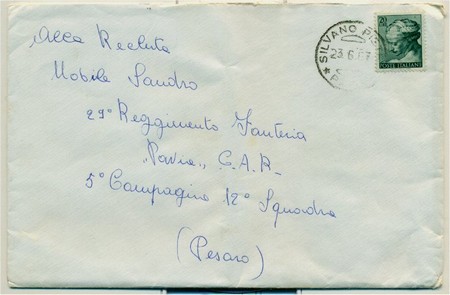 Alla Recluta
Mobile Sandro
29° Reggimento Fanteria
"Pavia" C.A.R.
5° Compagnia 12° Squadra
(Pesaro)
* SILVANO
23.6.67
POSTE ITALIANE